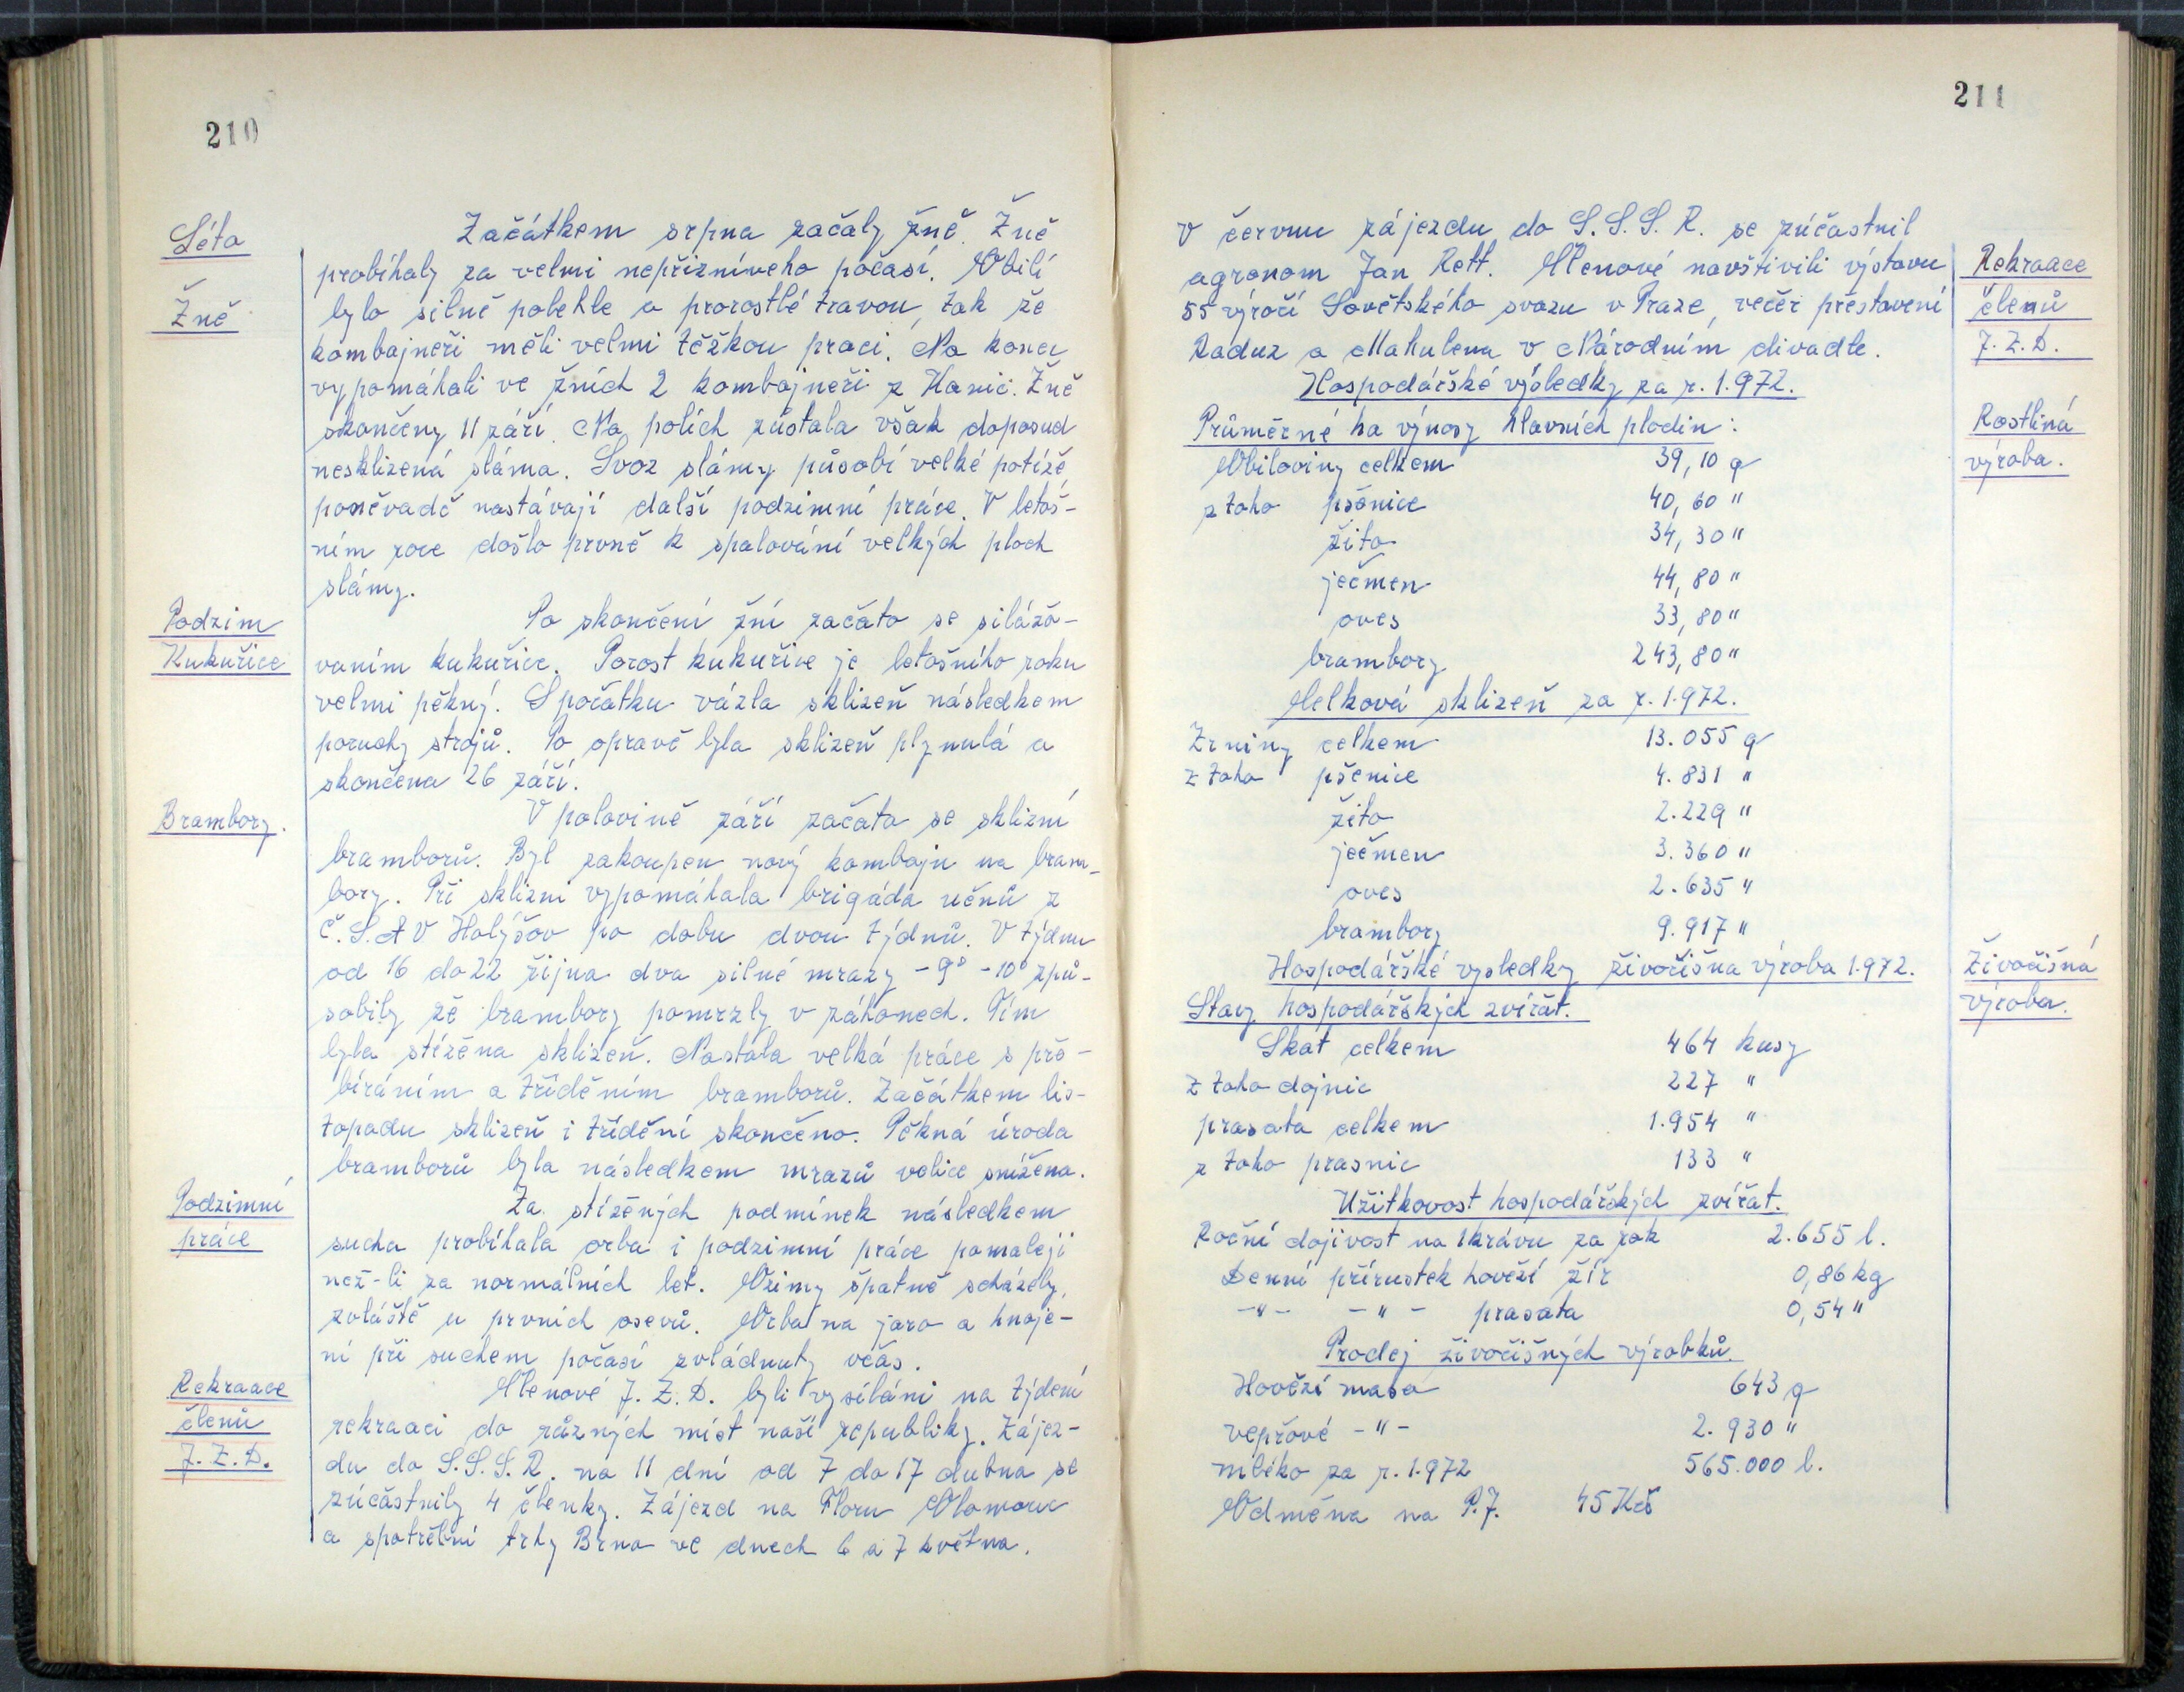 210
Léto
Žně
Začátkem srpna začaly žně. Žně
probíhaly za velmi nepřízníveho počasí. Obilí
bylo silně polehle a prorostlé travou, tak že
kombajneři měli velmi těžkou praci. Na konec
vypomáhali ve žních 2 kombajneři z Hanic. Žně
skončeny 11 září. Na polích zůstala však doposud
nesklizená sláma. Svoz slámy působí velké potíže,
poněvadč nastávají další podzimní práce. V letoš-
ním roce došlo prvně k spalování velkých ploch
slámy.
Podzim
Kukuřice
Po skončení žní začato se silážo-
vaním kukuřice. Porost kukuřice je letošního roku
velmi pěkný. Spočátku vázla sklizeň následkem
poruchy strojů. Po opravě byla sklizeň plynulá a
skončena 26 září.
Brambory.
V polovině září začato se sklizní
bramborů. Byl zakoupen nový kombajn na bram-
bory. Při sklizni vypomáhala brigáda učnů z
Č.S.A V Holýšov po dobu dvou týdnů. V týdnu
od 16 do 22 října dva silné mrazy -9° -10° způ-
sobily že brambory pomrzly v záhonech. Tím
byla stížena sklizeň. Nastala velká práce s pře-
bíráním a tříděním bramborů. Začátkem lis-
topadu sklizeň i třídění skončeno. Pěkná úroda
bramborů byla následkem mrazů velice snížena.
Podzimní
práce
Za stížených podmínek následkem
sucha probíhala orba i podzimní práce pomaleji
než-li za normálních let. Ozimy špatně scházely,
zvláště u prvních osevů. Orba na jaro a hnoje-
ní při suchem počasí zvládnuty včas.
Rekraace
členů
J.Z.D.
Členové J.Z.D. byli vysíláni na týdení
rekraaci do různých míst naší republiky. Zájez-
du do S.S.S.R. na 11 dní od 7 do 17 dubna se
zúčastnily 4 členky. Zájezd na Floru Olomouc
a spotřební trhy Brno ve dnech 6 a 7 května.
211
V červnu zájezdu do S.S.S.R. se zúčastnil
agronom Jan Rett. Členové navštívili výstavu
55 výročí Sovětského svazu v Praze, večer přestavení
Raduz a Mahulena v Národním divadle.
Rekraace
členů
J.Z.D.
Hospodářské výsledky za r. 1.972.
Průměrné ha výnosy hlavních plodin:
Rostliná
výroba.
Obiloviny celkem 39,10 q
z toho pšenice 40,60 "
žito 34,30 "
ječmen 44,80 "
oves 33,80 "
brambory 243,80 "
Celková sklizeň za r. 1.972.
Zrniny celkem 13.055 q
z toho pšenice 4.831 "
žito 2.229 "
ječmen 3.360 "
oves 2.635 "
brambory 9.917 "
Hospodářské vysledky živočišna výroba 1.972.
Živočišná
výroba.
Stavy hospodářských zvířat.
Skot celkem 464 kusy
z toho dojnic 227 "
prasata celkem 1.954 "
z toho prasnic 133 "
Užitkovost hospodářských zvířat.
Roční dojivost na 1 krávu za rok 2.655 l.
Denní přírustek hovězí žír 0,86 kg
-"- -"- prasata 0,54 "
Prodej živočišných výrobků.
Hovězí maso 643 q
vepřové -"- 2.930 "
mléko za r. 1.972 565.000 l.
Odměna na P.J. 45 Kčs